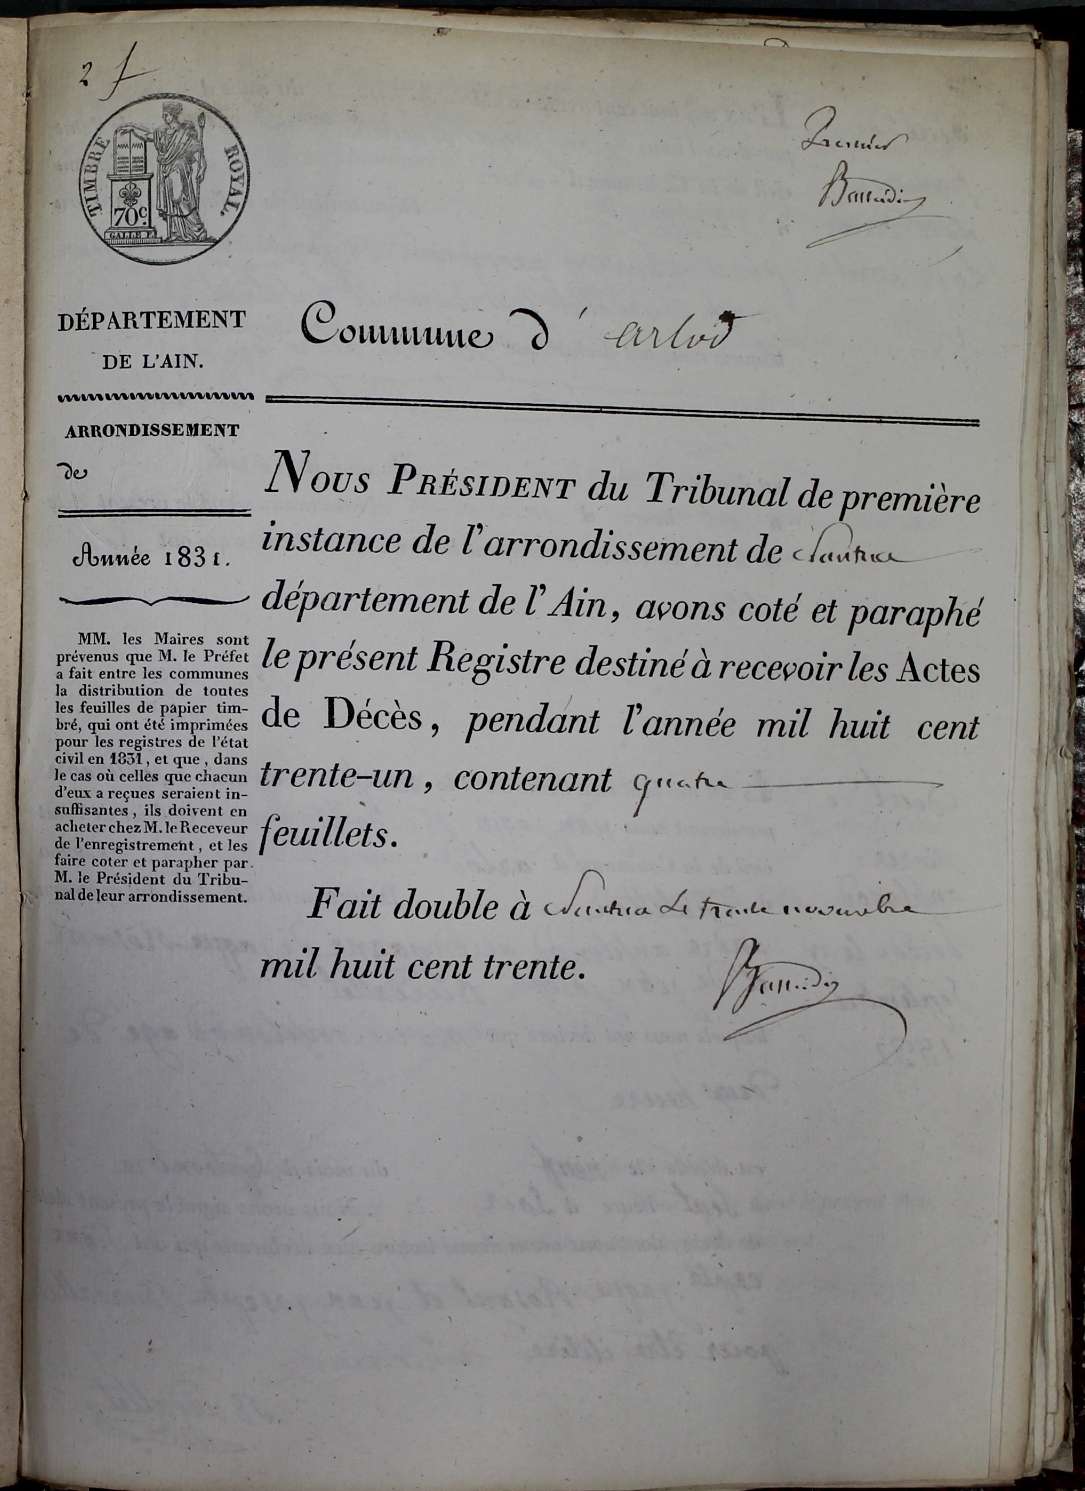 2
TIMBRE ROYAL.
70c.
GALLE F.
Premier
DÉPARTEMENT
DE L'AIN.
ARRONDISSEMENT
de
Année 1831.
MM. les Maires sont
prévenus que M. le Préfet
a fait entre les communes
la distribution de toutes
les feuilles de papier tim-
bré, qui ont été imprimées
pour les registres de l'état
civil en 1831, et que, dans
le cas où celles que chacun
d'eux a reçues seraient in-
suffisantes, ils doivent en
acheter chez M. le Receveur
de l'enregistrement, et les
faire coter et parapher par
M. le Président du Tribu-
nal de leur arrondissement.
Commune d'arlod
NOUS PRÉSIDENT du Tribunal de première
instance de l'arrondissement de Nantua
département de l'Ain, avons coté et paraphé
le présent Registre destiné à recevoir les Actes
de Décès, pendant l'année mil huit cent
trente-un, contenant quatre
feuillets.
Fait double à Nantua Le trente novembre
mil huit cent trente.